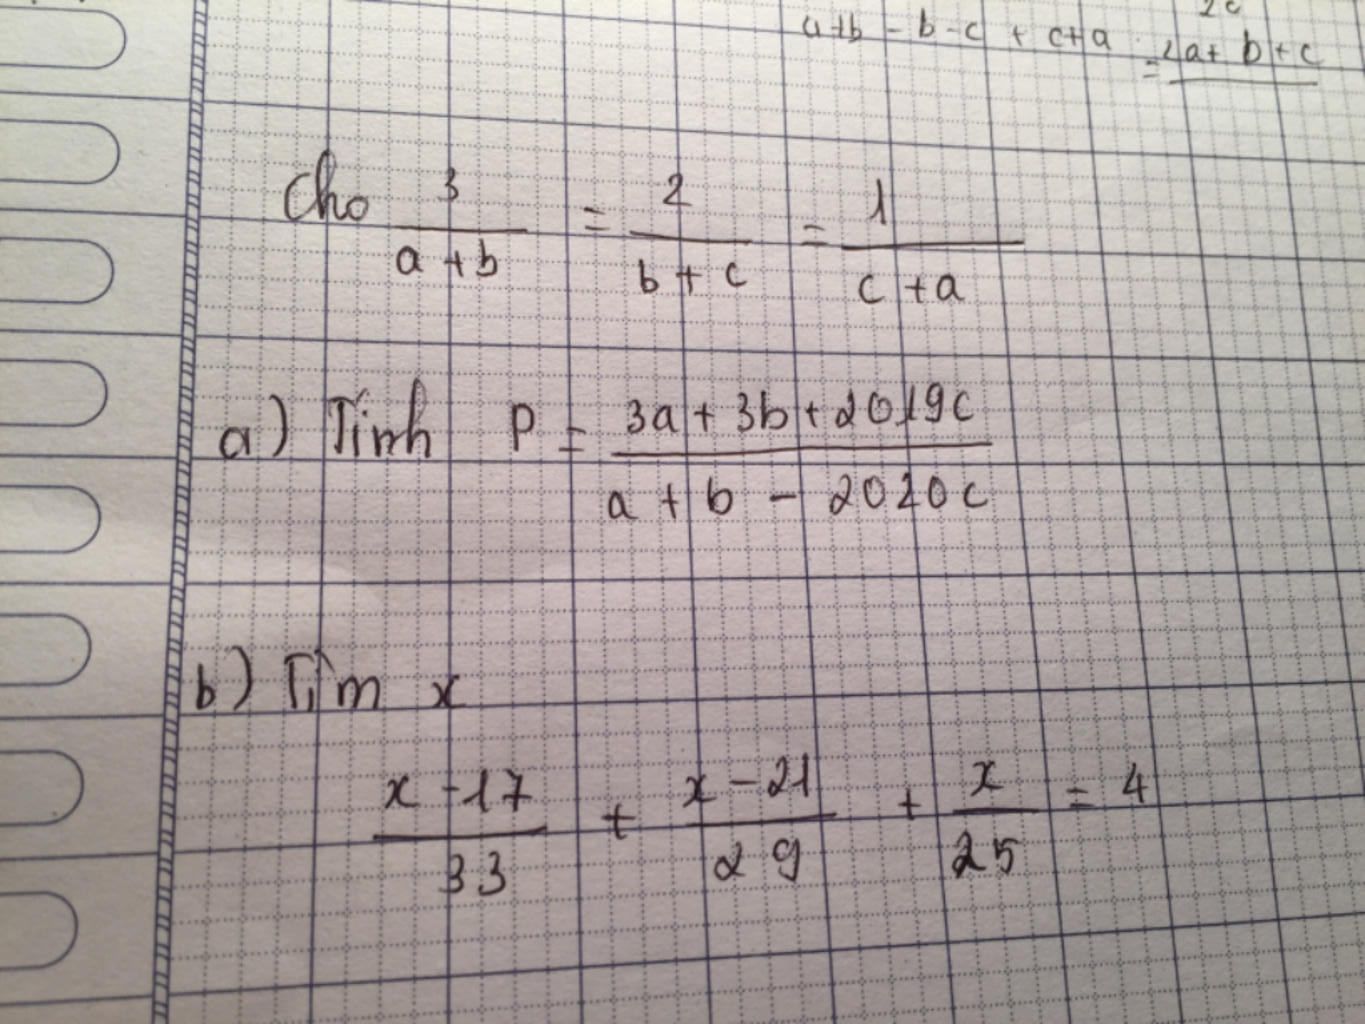 2c
a+b - b - c + c+a = 2a + b + c
Cho 3/(a + b) = 2/(b + c) = 1/(c + a)
a) Tính P = (3a + 3b + 2019c)/(a + b - 2020c)
b) Tìm x
(x - 17)/33 + (x - 21)/29 + x/25 = 4